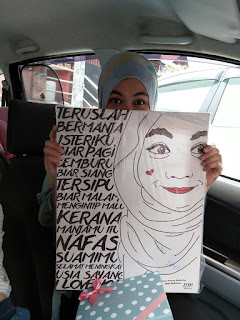 TERUSLAH
BERMANJA
ISTERIKU
BIAR PAGI
CEMBURU
BIAR SIANG
TERSIPU
BIAR MALAM
MENGINTIP MALU
KERANA
MANJAMU ITU
NAFAS
SUAMIMU
SELAMAT MENINGKAT
USIA SAYANG
I LOVE